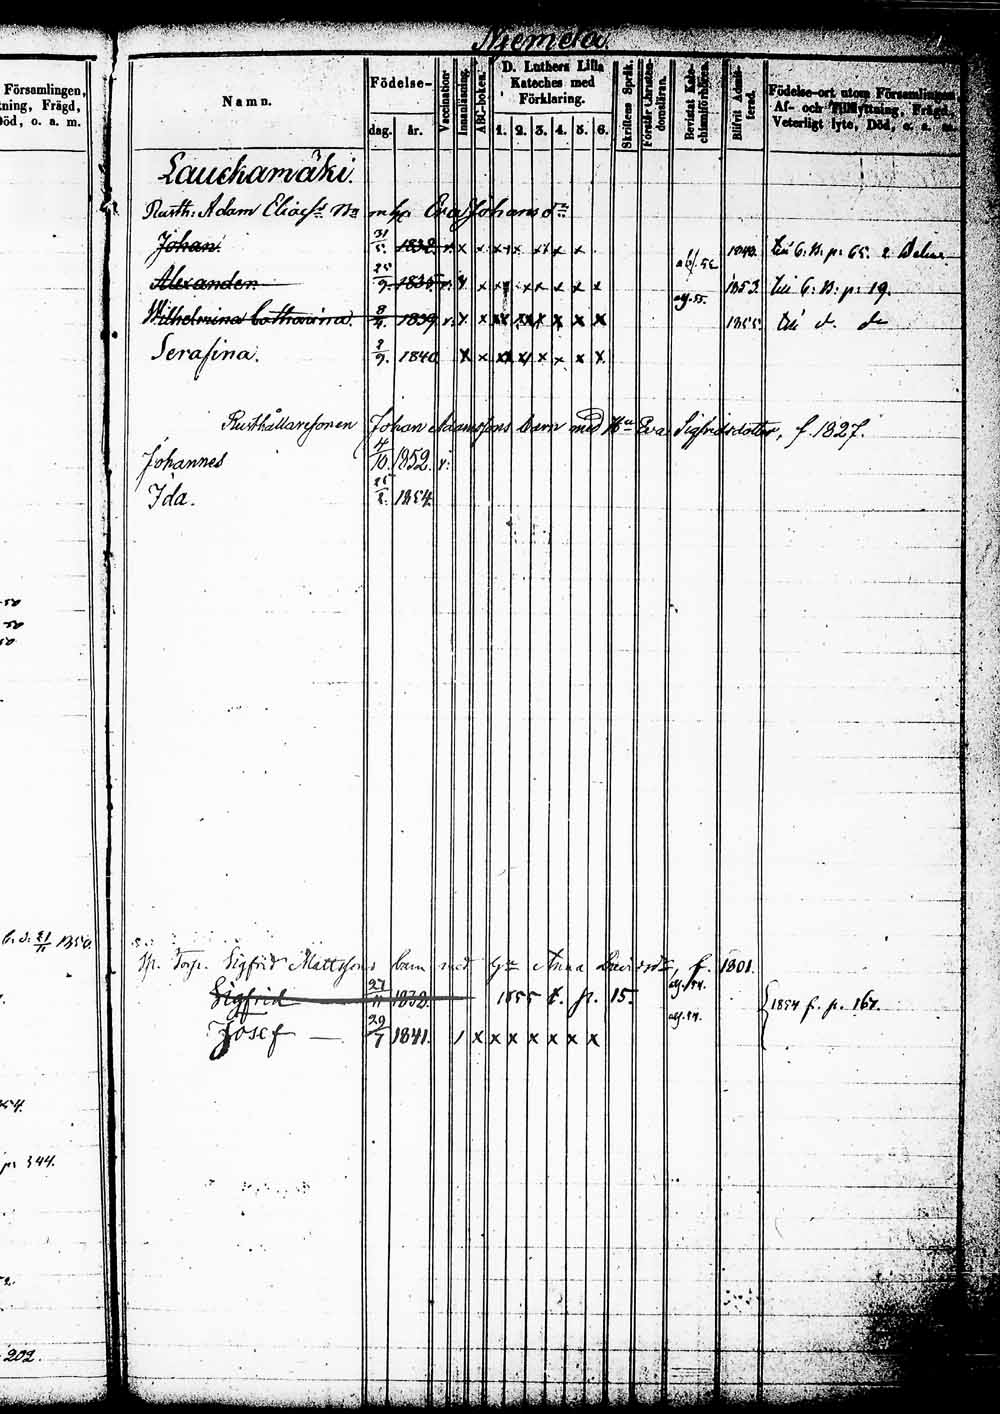 Niemelä
Församlingen,
tning, Frägd,
Död, o. a. m.
Namn.
Födelse-
dag.
år.
Vaccination.
Innanläsning.
ABC-boken.
D. Luthers Lilla
Kateches med
Förklaring.
1. 2. 3. 4. 5. 6.
Skriftens Språk.
Förstår Christen-
domsläran.
Bevistat Kate-
chismiförhören.
Blifvit Admit-
terad.
Födelse-ort utom Församlingen,
Af- och Tillflyttning, Frägd,
Veterligt lyte, Död, o. a. m.
Lauckamäki.
Rusth: Adam Eliæss: barn m h Eva Johansdr
Johan 31/5. 1832 v. x x x x x x x x
1840. till C. B: p: 65.
Alexander 25/9 1835 v: x x x x x x x x afl. 52 1853. till C: B: p: 19.
Wilhelmina Catharina. 8/4. 1839 v: x x x x x x x x afl. 55. 1855. till d. do
Serafina. 2/9. 1840 x x x x x x x x
Rusthållaresonen Johan Adamssons barn med Hu Eva Sigfridsdotter, f. 1827.
Johannes 4/10. 1852. v:
Ida. 1854.
50
50
50
21/11 1850.
Sp. Torp. Sigfrid Mattssons barn med Anna Davidsdr, f. 1801.
Sigfrid 27/11 1838 1855 f. p. 15. afl. 54. 1854 f. p. 167.
Josef — 29/7 1841. / x x x x x x x afl. 54.
54.
p: 344.
202.